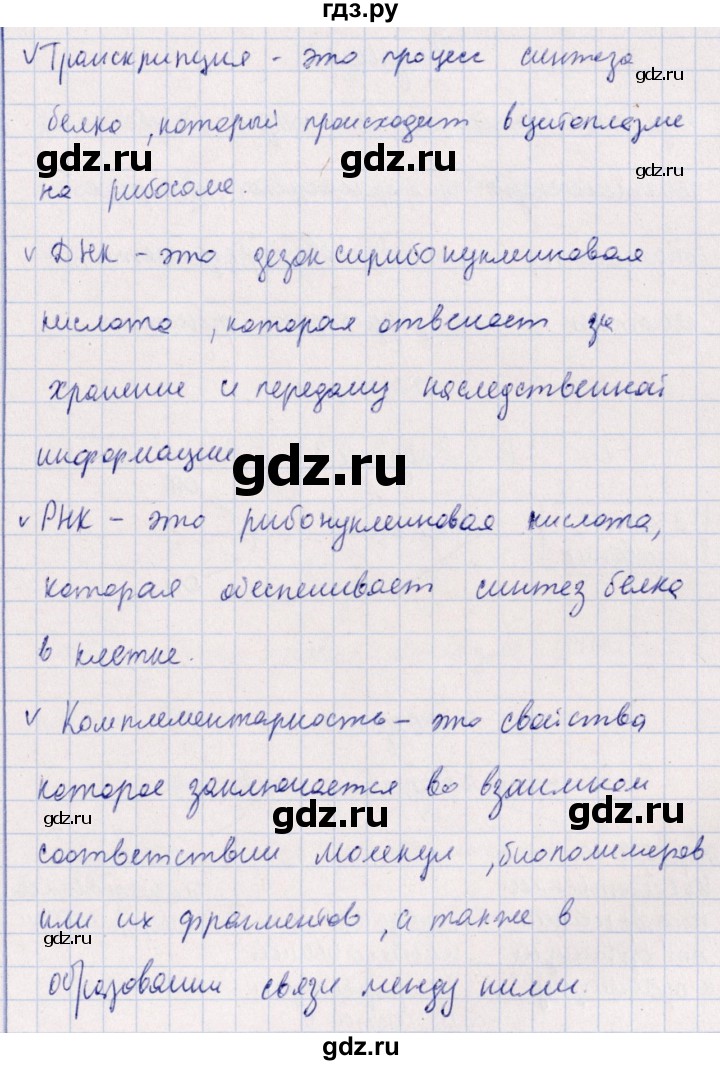 гдз.ру
√ Транскрипция - это процесс синтеза
gdz.ru
белка, который происходит в цитоплазме
gdz.ru gdz.ru gdz.ru
на рибосоме.
√ ДНК - это дезоксирибонуклеиновая
кислота, которая отвечает за
хранение и передачу наследственной
информации
gdz.ru
√ РНК - это рибонуклеиновая кислота,
которая обеспечивает синтез белка
в клетке.
√ Комплементарность - это свойства
которое заключается во взаимном
gdz.ru gdz.ru gdz.ru
соответствии молекул, биополимеров
или их фрагментов, а также в
gdz.ru
образовании связи между ними.
gdz.ru